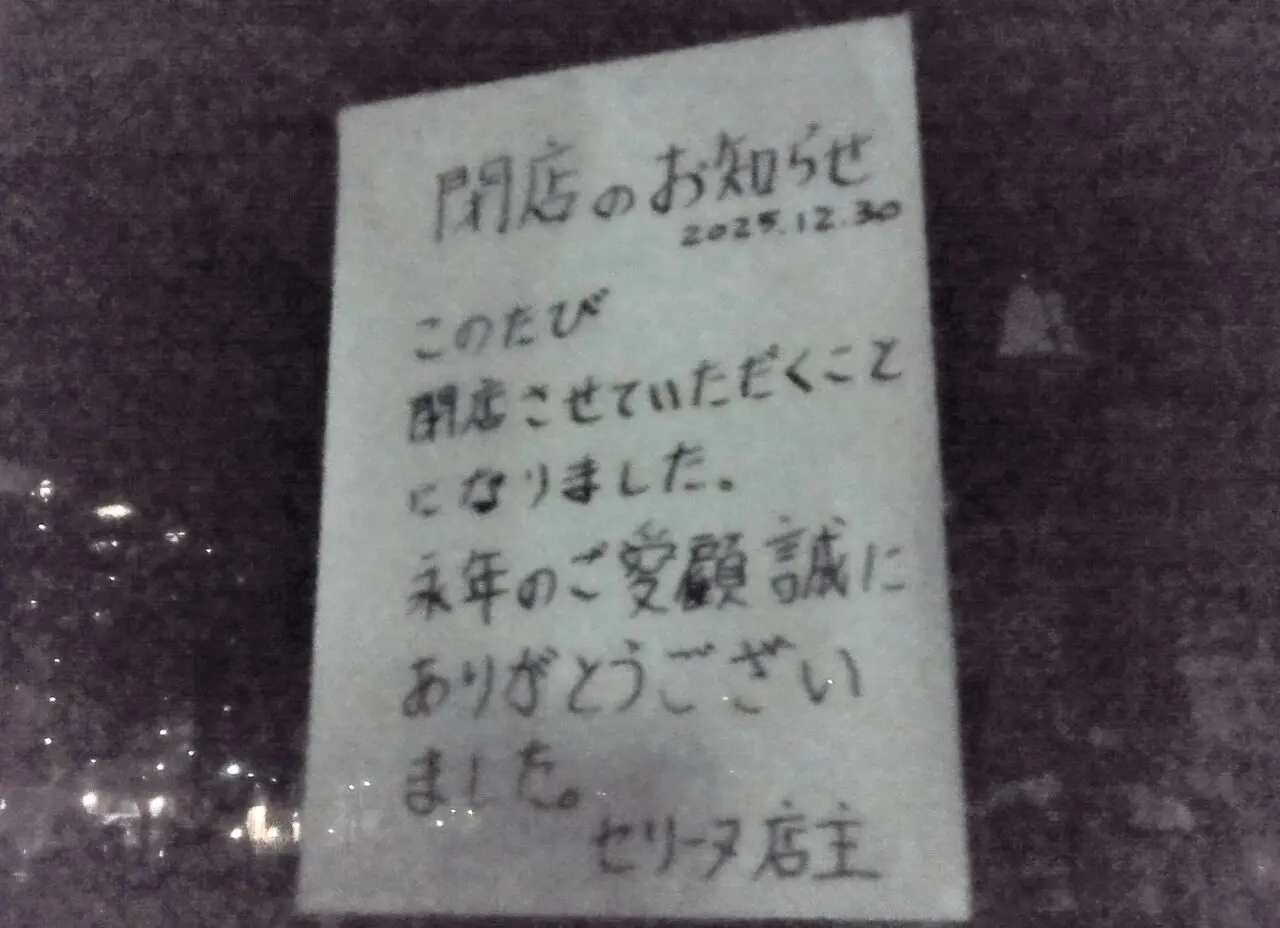 閉店のお知らせ
2025.12.30
このたび
閉店させていただくこと
になりました。
永年のご愛顧誠に
ありがとうござい
ました。
セリーヌ店主